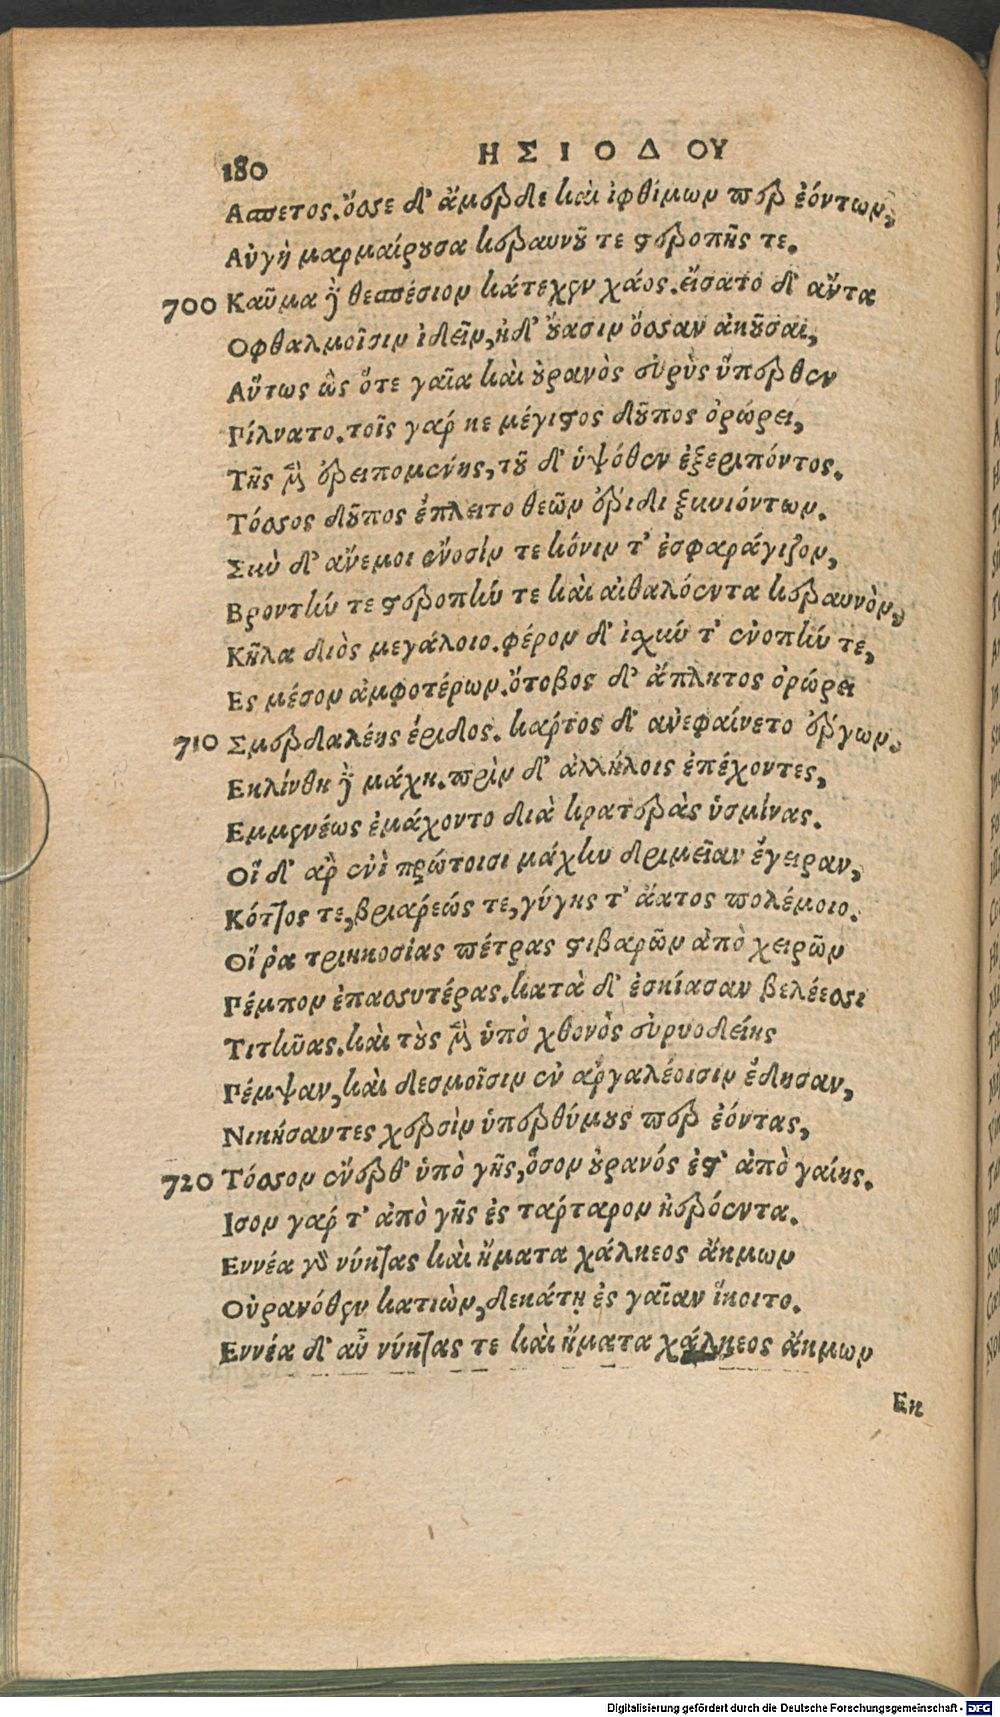 180 ΗΣΙΟΔΟΥ
Ασπετος. ὄσσε δ' ἄμερδε καὶ ἰφθίμων περ ἐόντων,
Αὐγὴ μαρμαίρουσα κεραυνοῦ τε στεροπῆς τε.
700 Καῦμα δὲ θεσπέσιον κάτεχεν χάος. εἴσατο δ' ἄντα
Οφθαλμοῖσιν ἰδεῖν, ἠδ' οὔασιν ὄσσαν ἀκοῦσαι,
Αὔτως ὡς ὅτε γαῖα καὶ οὐρανὸς εὐρὺς ὕπερθεν
Πίλνατο. τοῖς γάρ κε μέγιστος δοῦπος ὀρώρει,
Τῆς μὲν ἐρειπομένης, τοῦ δ' ὑψόθεν ἐξεριπόντος.
Τόσσος δοῦπος ἔπλειτο θεῶν ἔριδι ξυνιόντων.
Σὺν δ' ἄνεμοι ἔνοσίν τε κόνιν τ' ἐσφαράγιζον,
Βροντήν τε στεροπήν τε καὶ αἰθαλόεντα κεραυνὸν,
Κῆλα διὸς μεγάλοιο. φέρον δ' ἰαχήν τ' ἐνοπήν τε,
Ες μέσον ἀμφοτέρων. ὄτοβος δ' ἄπλητος ὀρώρει
710 Σμερδαλέης ἔριδος. κάρτος δ' ἀνεφαίνετο ἔργων.
Εκλίνθη δὲ μάχη. πρὶν δ' ἀλλήλοις ἐπέχοντες,
Εμμενέως ἐμάχοντο διὰ κρατερὰς ὑσμίνας.
Οἵ δ' ἄρ ἐνὶ πρώτοισι μάχην δριμεῖαν ἔγειραν,
Κόττος τε, βριαρεώς τε, γύγης τ' ἄατος πολέμοιο.
Οἵ ῥα τριηκοσίας πέτρας στιβαρῶν ἀπὸ χειρῶν
Πέμπον ἐπασσυτέρας. κατὰ δ' ἐσκίασαν βελέεσσι
Τιτῆνας. καὶ τοὺς μὲν ὑπὸ χθονὸς εὐρυοδείης
Πέμψαν, καὶ δεσμοῖσιν ἐν ἀργαλέοισιν ἔδησαν,
Νικήσαντες χερσὶν ὑπερθύμους περ ἐόντας,
720 Τόσσον ἔνερθ' ὑπὸ γῆς, ὅσον οὐρανός ἐστ' ἀπὸ γαίης.
Ισον γάρ τ' ἀπὸ γῆς ἐς τάρταρον ἠερόεντα.
Εννέα γὰρ νύκτας καὶ ἤματα χάλκεος ἄκμων
Οὐρανόθεν κατιὼν, δεκάτῃ ἐς γαῖαν ἵκοιτο.
Εννέα δ' αὖ νύκτας τε καὶ ἤματα χάλκεος ἄκμων
Εκ
Digitalisierung gefördert durch die Deutsche Forschungsgemeinschaft - DFG